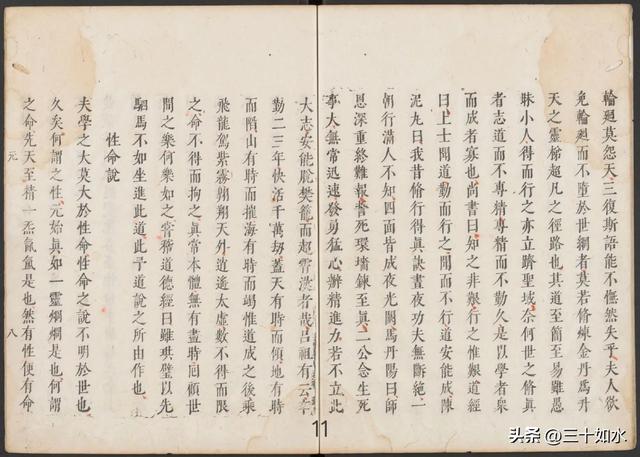 輪廻莫怨天三復斯語能不憮然失乎夫人欲
免輪廻而不墮於世網者莫若修煉金丹爲升
天之靈梯超凡之徑路也其道至簡至易雖愚
昧小人得而行之亦立躋聖域奈何世之脩眞
者志道而不專精專精而不勤久是以學者衆
而成者寡也尚書曰知之非艱行之惟艱道經
曰上士聞道勤而行之聞而不行道安能成陳
泥丸曰我昔脩行得眞訣晝夜功夫無斷絕一
朝行滿人不知四面皆成夜光闕馬丹陽曰師
恩深重終難報誓死環墻鍊至眞二公念生死
事大無常迅速發勇猛心辦精進力若不立此
大志安能脫樊籠而超霄漢者哉呂祖有云辛
勤二三年快活千萬劫蓋天有時而傾地有時
而陷山有時而摧海有時而竭惟道成之後乘
飛龍駕紫霧翱翔天外逍遙太虛數不得而限
之命不得而拘之眞常本體無有盡時回顧世
間之樂何樂如之常務道德經曰雖拱璧以先
駟馬不如坐進此道此予道說之所由作也
性命說
夫學之大莫大於性命性命之說不明於世也
久矣何謂之性元始眞如一靈炯炯是也何謂
之命先天至精一炁氤氳是也然有性便有命
元 八
11
头条 @三十如水